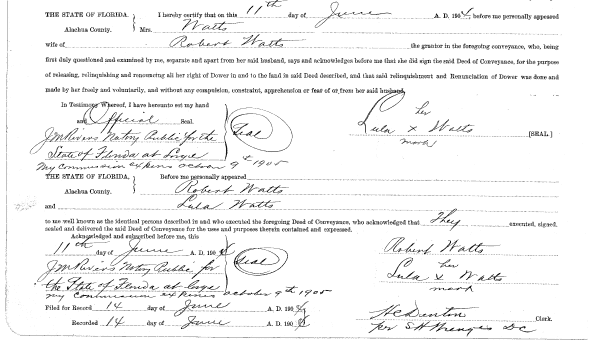 THE STATE OF FLORIDA, } I hereby certify that on this 11th day of June A. D. 1904, before me personally appeared
Alachua County. Mrs. Watts
wife of Robert Watts the grantor in the foregoing conveyance, who, being
first duly questioned and examined by me, separate and apart from her said husband, says and acknowledges before me that she did sign the said Deed of Conveyance, for the purpose
of releasing, relinquishing and renouncing all her right of Dower in and to the land in said Deed described, and that said relinquishment and Renunciation of Dower was done and
made by her freely and voluntarily, and without any compulsion, constraint, apprehension or fear of or from her said husband.
In Testimony Whereof, I have hereunto set my hand
and Official Seal.
her
Lula x Watts [SEAL]
mark
J M Rivers Notary Public for the (Seal)
State of Florida at Large
My commission expires October 9th 1905
THE STATE OF FLORIDA, } Before me personally appeared
Alachua County. Robert Watts
and Lula Watts
to us well known as the identical persons described in and who executed the foregoing Deed of Conveyance, who acknowledged that They executed, signed,
sealed and delivered the said Deed of Conveyance for the uses and purposes therein contained and expressed.
Acknowledged and subscribed before me, this
11th day of June A. D. 190
Robert Watts
her
Lula x Watts
mark
J M Rivers Notary Public for (Seal)
the State of Florida at Large
my commission expires October 9th 1905
Filed for Record 14 day of June A. D. 190
H C Denton Clerk.
Recorded 14 day of June A. D. 190
per S H D C